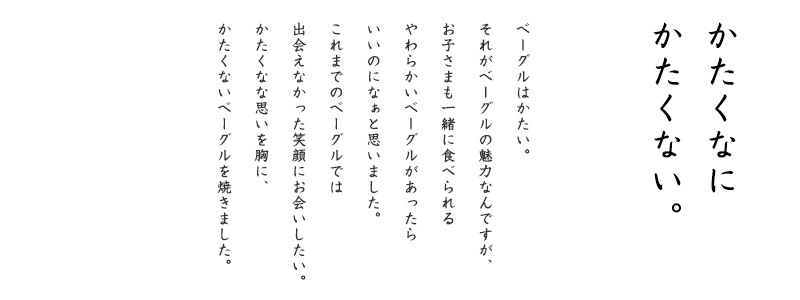 かたくなに
かたくない。
ベーグルはかたい。
それがベーグルの魅力なんですが、
お子さまも一緒に食べられる
やわらかいベーグルがあったら
いいのになぁと思いました。
これまでのベーグルでは
出会えなかった笑顔にお会いしたい。
かたくなな思いを胸に、
かたくないベーグルを焼きました。